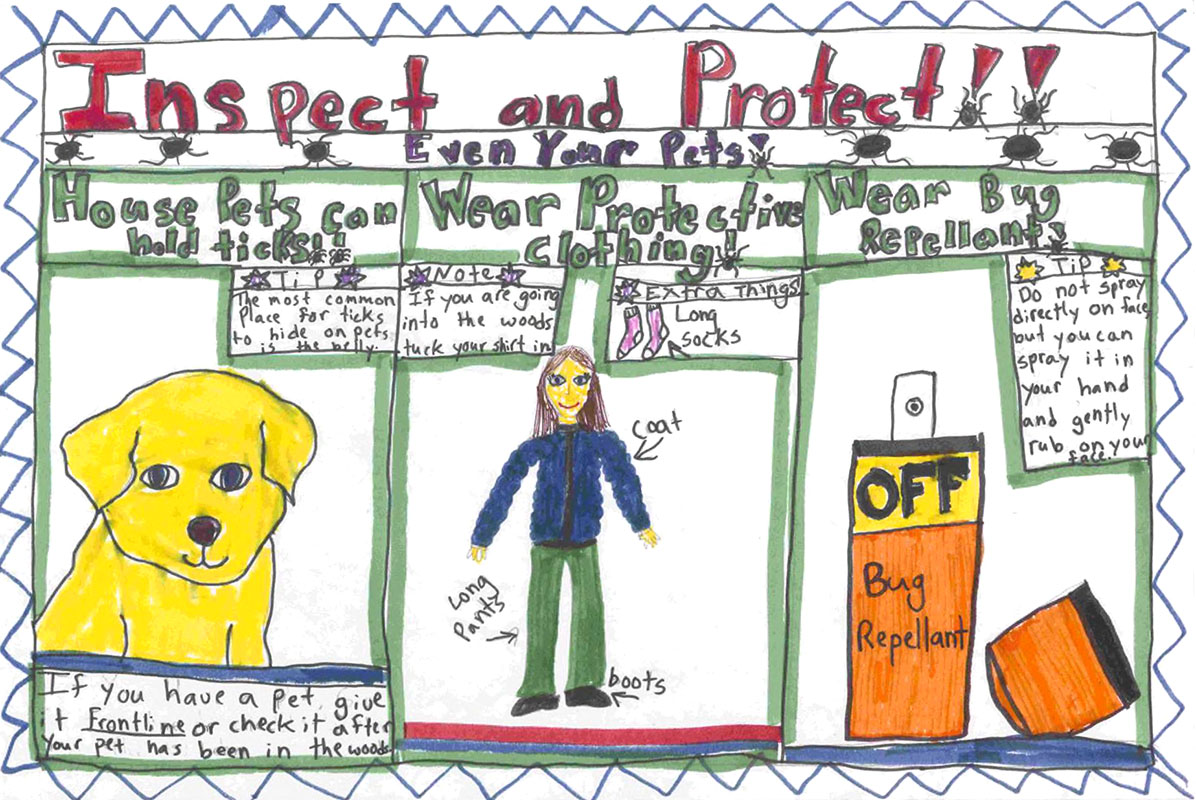 Inspect and Protect!!
Even Your Pets!
House Pets can
hold ticks!!
TiP
The most common
Place for ticks
to hide on pets
is the belly.
If you have a pet give
it Frontline or check it after
your pet has been in the woods
Wear Protective
clothing!
Note
If you are going
into the woods
tuck your shirt in
Extra Things
Long
socks
coat
Long
Pants
boots
Wear Bug
Repellant!
TiP
Do not spray
directly on face
but you can
spray it in
your hand
and gently
rub on your
face.
OFF
Bug
Repellant